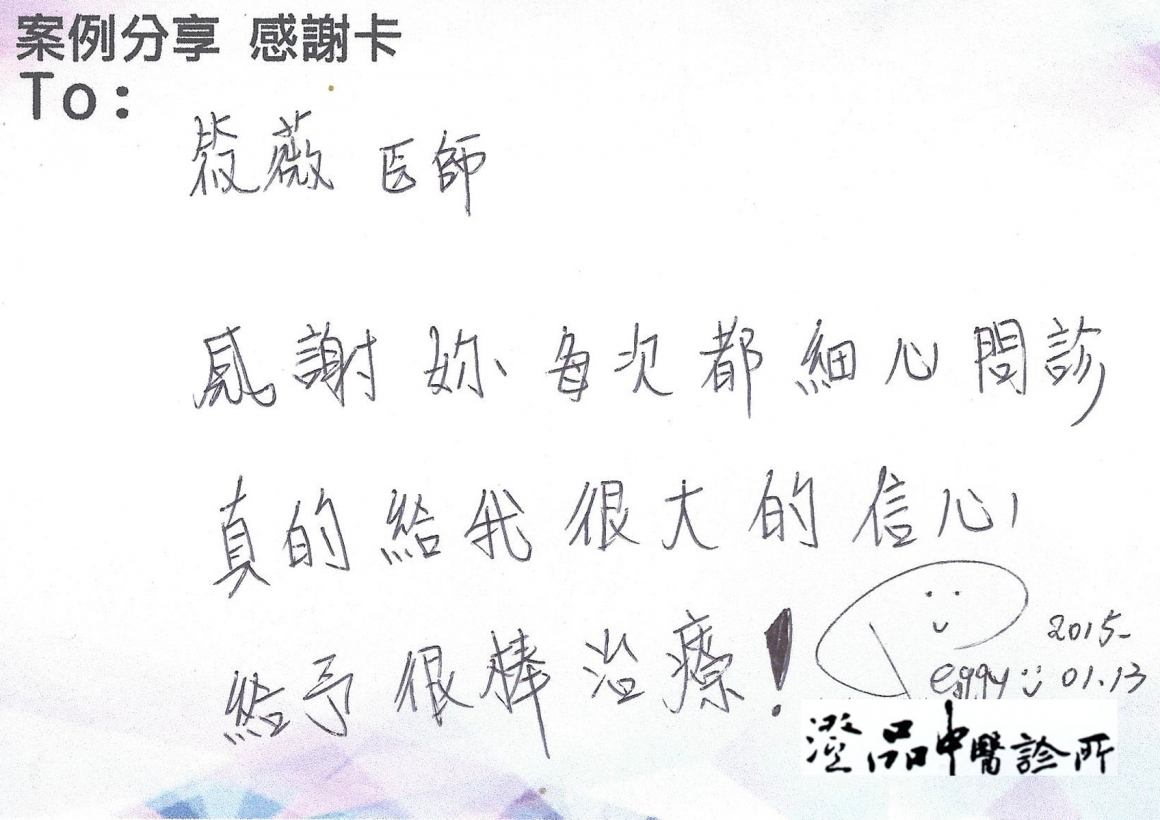 案例分享 感謝卡
To:
筱薇 医師
感謝妳每次都細心問診
真的給我很大的信心
給予很棒治療!
Peggy
2015.
01.13
澄品中醫診所